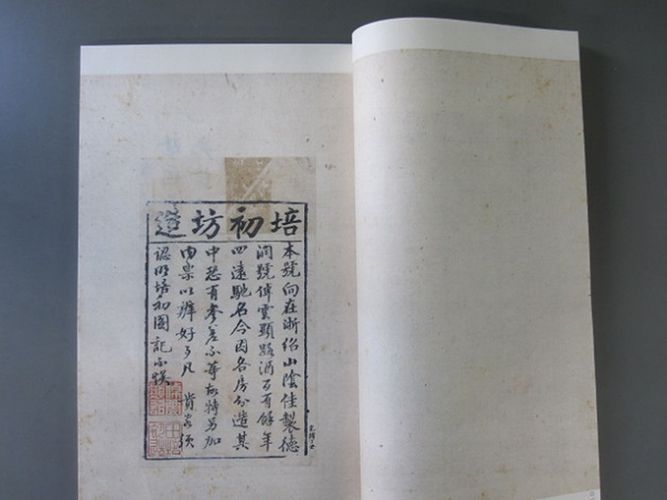 培初坊造
本號向在浙紹山陰佳製德
潤號傳雲顯路酒乃百餘年
四遠馳名今因各房分造其
中恐有參差不等故特另加
內票以辨好歹凡 賞客須
認明培初圖記不悞